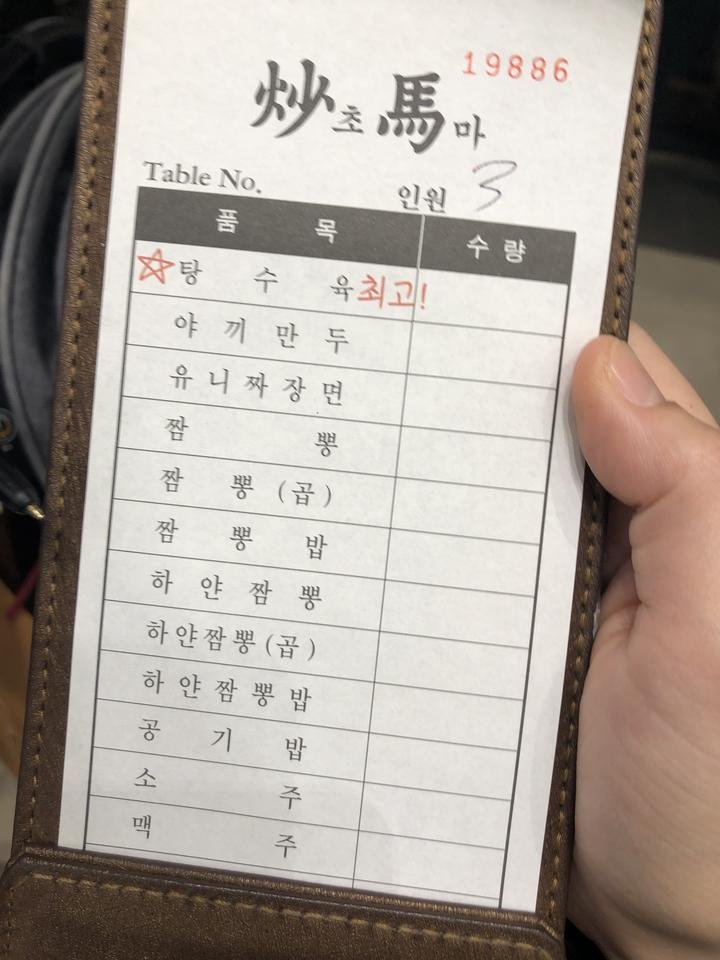 19886
炒초馬마
Table No. 인원 3
품 목 수 량
☆탕 수 육 최고!
야 끼 만 두
유 니 짜 장 면
짬 뽕
짬 뽕 (곱)
짬 뽕 밥
하 얀 짬 뽕
하얀짬뽕(곱)
하 얀 짬 뽕 밥
공 기 밥
소 주
맥 주